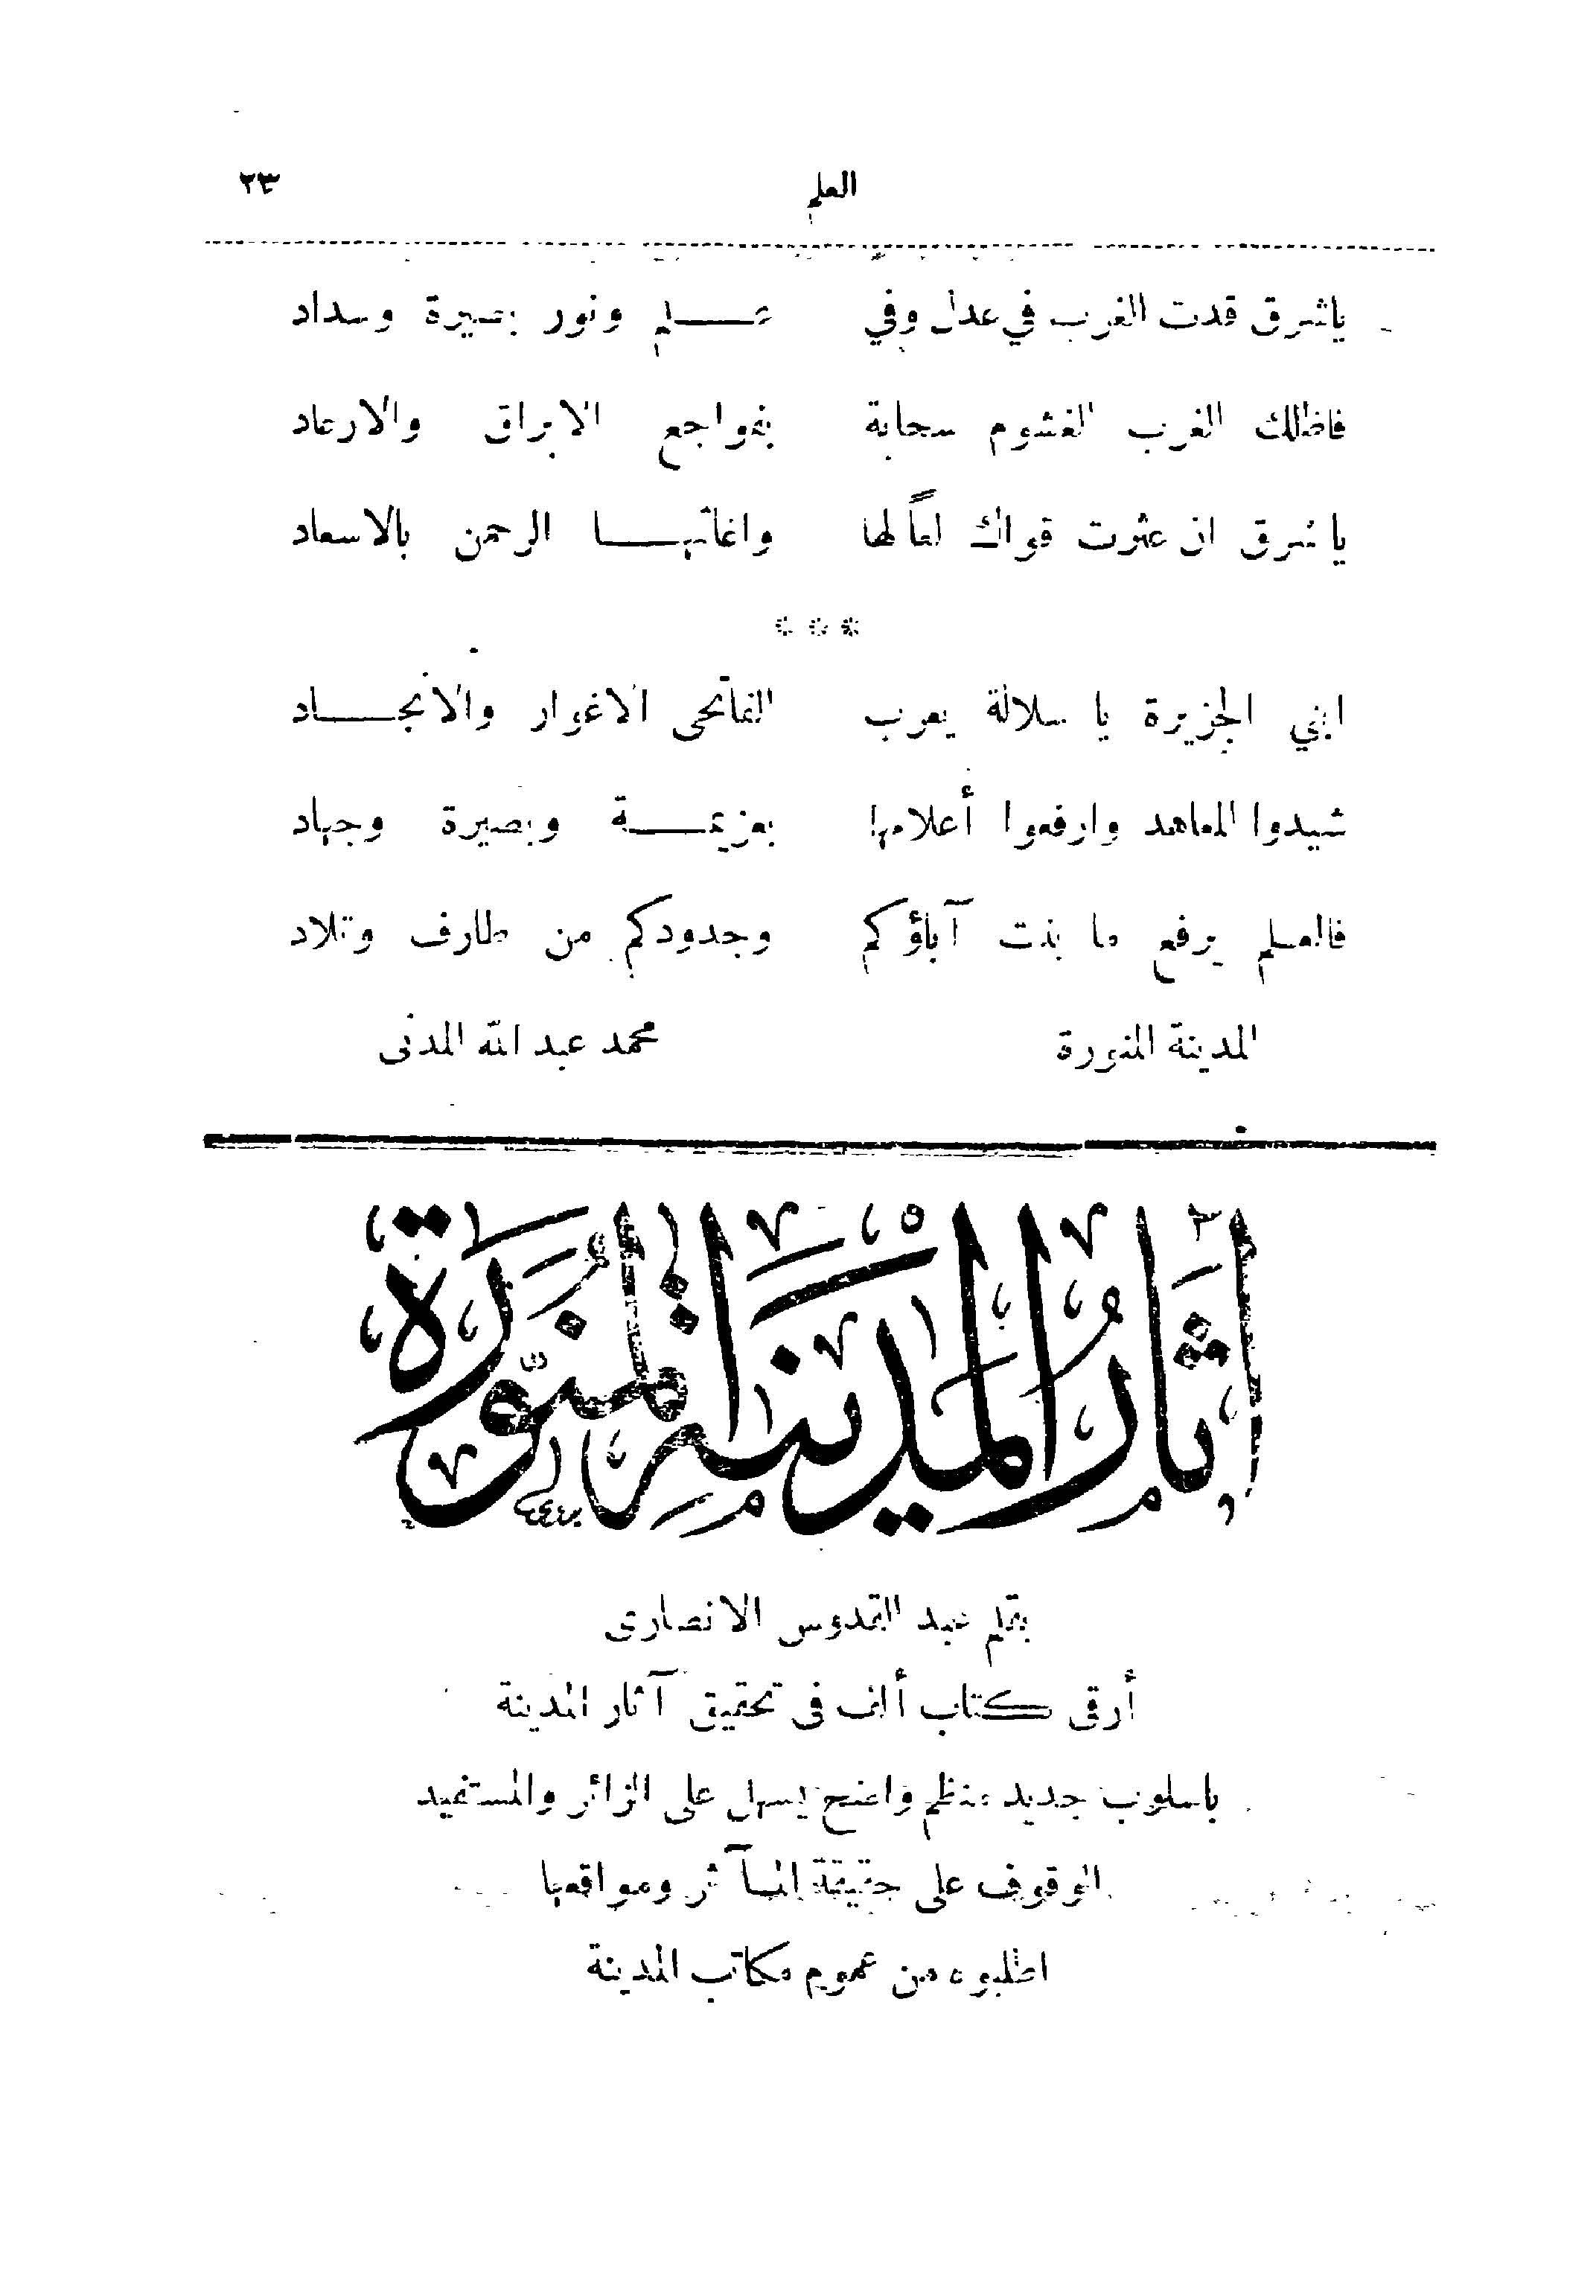 العلم ٢٣
ياشرق قدت الغرب في عدل وفي علم ونور بصيرة وسداد
فاظلك الغرب الغشوم سحابة بفواجع الابراق والارعاد
يا شرق ان عثرت قواك لعاً لها واغاثها الرحمن بالاسعاد
***
ابني الجزيرة يا سلالة يعرب الفاتحى الاغوار والانجاد
شيدوا المعاهد وارفعوا أعلامها بعزيمة وبصيرة وجهاد
فالعلم يرفع ما بنت آباؤكم وجدودكم من طارف وتلاد
المدينة المنورة محمد عبد الله المدنى
آثار المدينة المنورة
بقلم عبد القدوس الانصارى
أرقى كتاب ألف فى تحقيق آثار المدينة
باسلوب جديد منظم واضح يسهل على الزائر والمستفيد
الوقوف على حقيقة المآثر ومواقعها
اطلبوه من عموم مكاتب المدينة